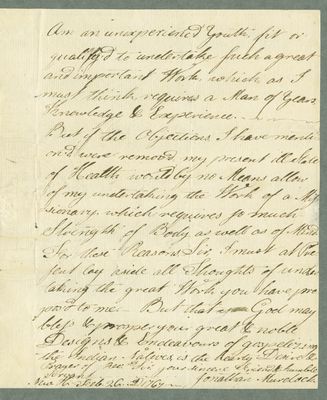 Am an unexperienced Youth; fit or
qualifyd to undertake such a great
and important Work which as I
must think requires a Man of Years
Knowledge & Experience.
But if the Objections I have menti
ond were removd my present State
of Health would by no Means allow
of my undertaking the Work of a Mis
sionary which requires so much
Strength of Body as well as of Mind
For these Reasons Sir, I must at Pre
sent lay aside all Thoughts of under
taking the great Work you have pro
posd to me. But that God may
bless & prosper your great & noble
Designs & Endeavours of gospelizing
the Indian Natives is the hearty Desire &
Prayer of Rev. Sir your sincere Friend & humble
Servant
Jonathan Murdock
New H. Feb. 26. 1767